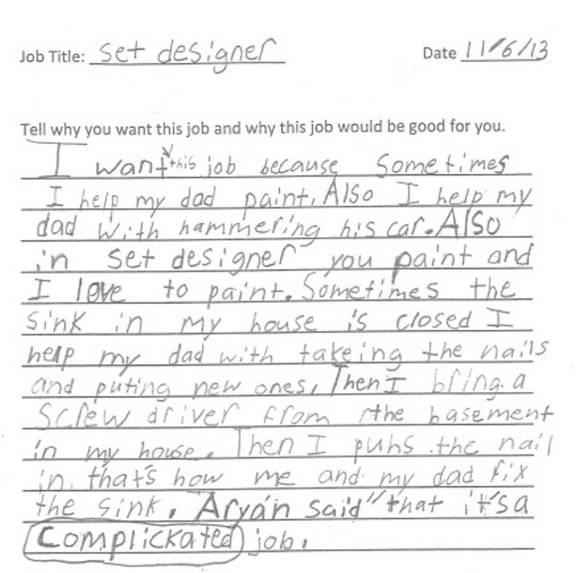 Job Title: set designer Date 11/6/13
Tell why you want this job and why this job would be good for you.
I want this job because Sometimes
I help my dad paint. Also I help my
dad with hammering his car. Also
in set designer you paint and
I love to paint. Sometimes the
Sink in my house is closed I
help my dad with takeing the nails
and puting new ones. Then I bring a
Screw driver from the basement
in my house. Then I puhs the nail
in. that's how me and my dad fix
the sink. Aryan said "that it's a
Complickated job.